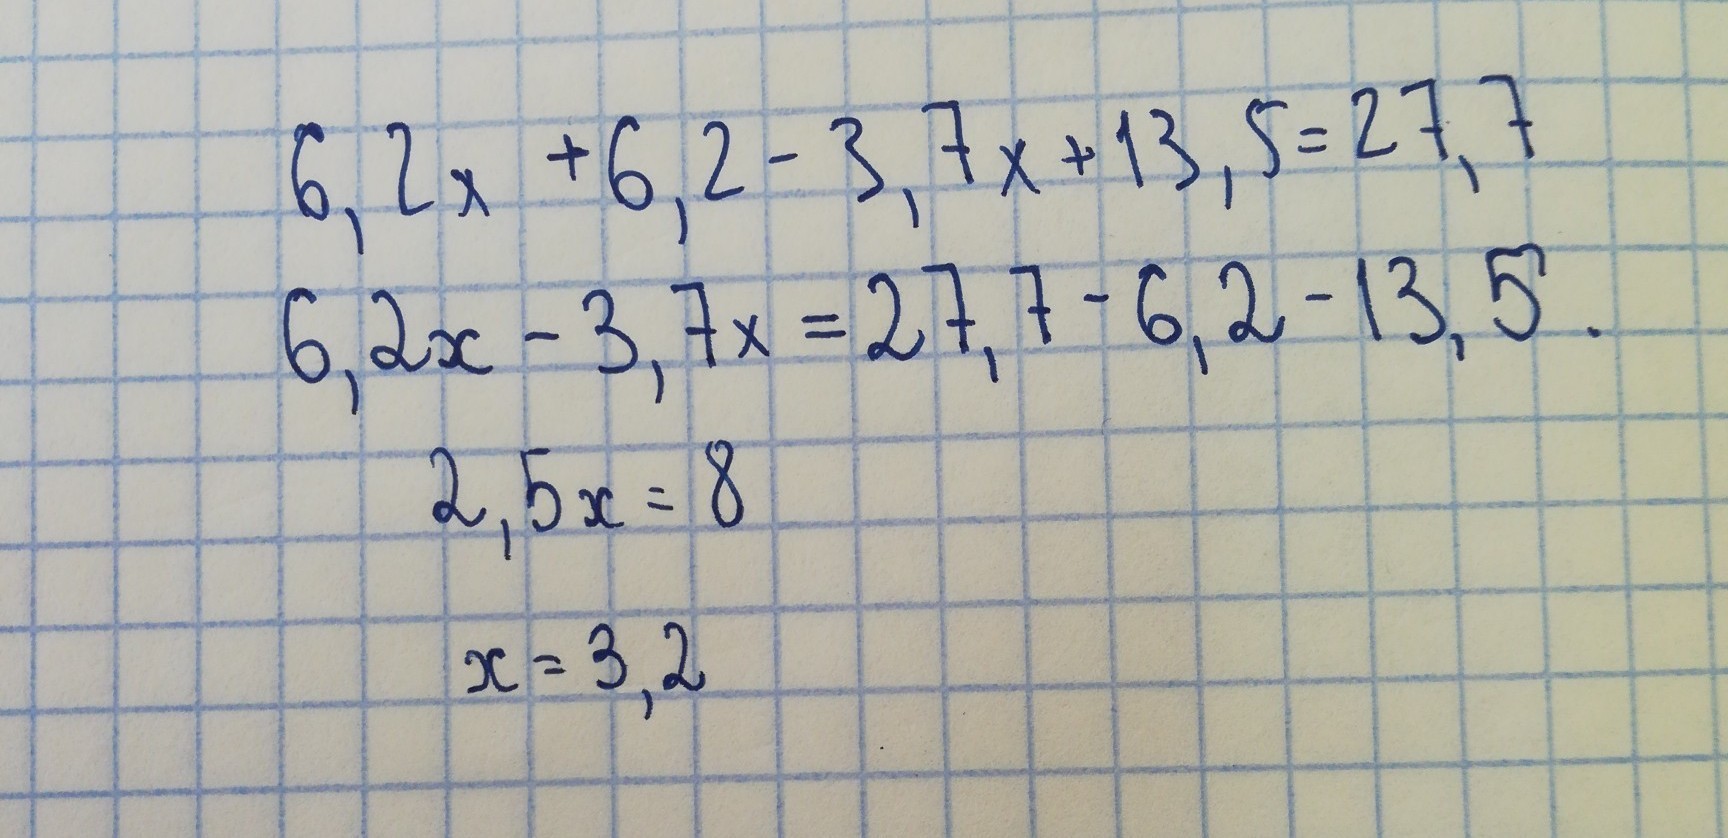 6,2x + 6,2 - 3,7x + 13,5 = 27,7
6,2x - 3,7x = 27,7 - 6,2 - 13,5.
2,5x = 8
x = 3,2